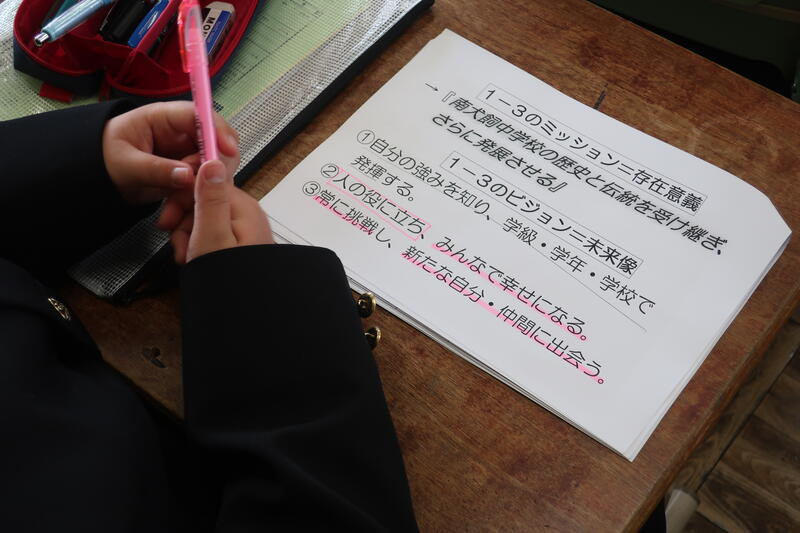 1－3のミッション＝存在意義
→『南犬飼中学校の歴史と伝統を受け継ぎ、
さらに発展させる』
1－3のビジョン＝未来像
①自分の強みを知り、学級・学年・学校で
発揮する。
②人の役に立ち、みんなで幸せになる。
③常に挑戦し、新たな自分・仲間に出会う。
MONO